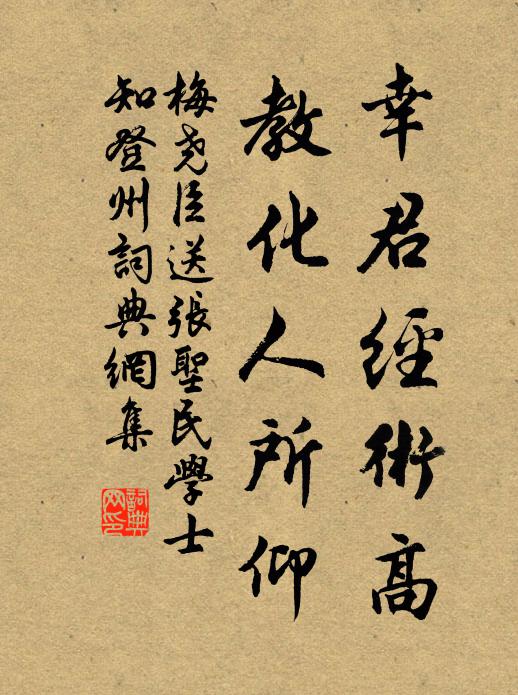 幸君經術高
教化人所仰
梅堯臣送張聖民學士
知登州詞典網集
詞典网印